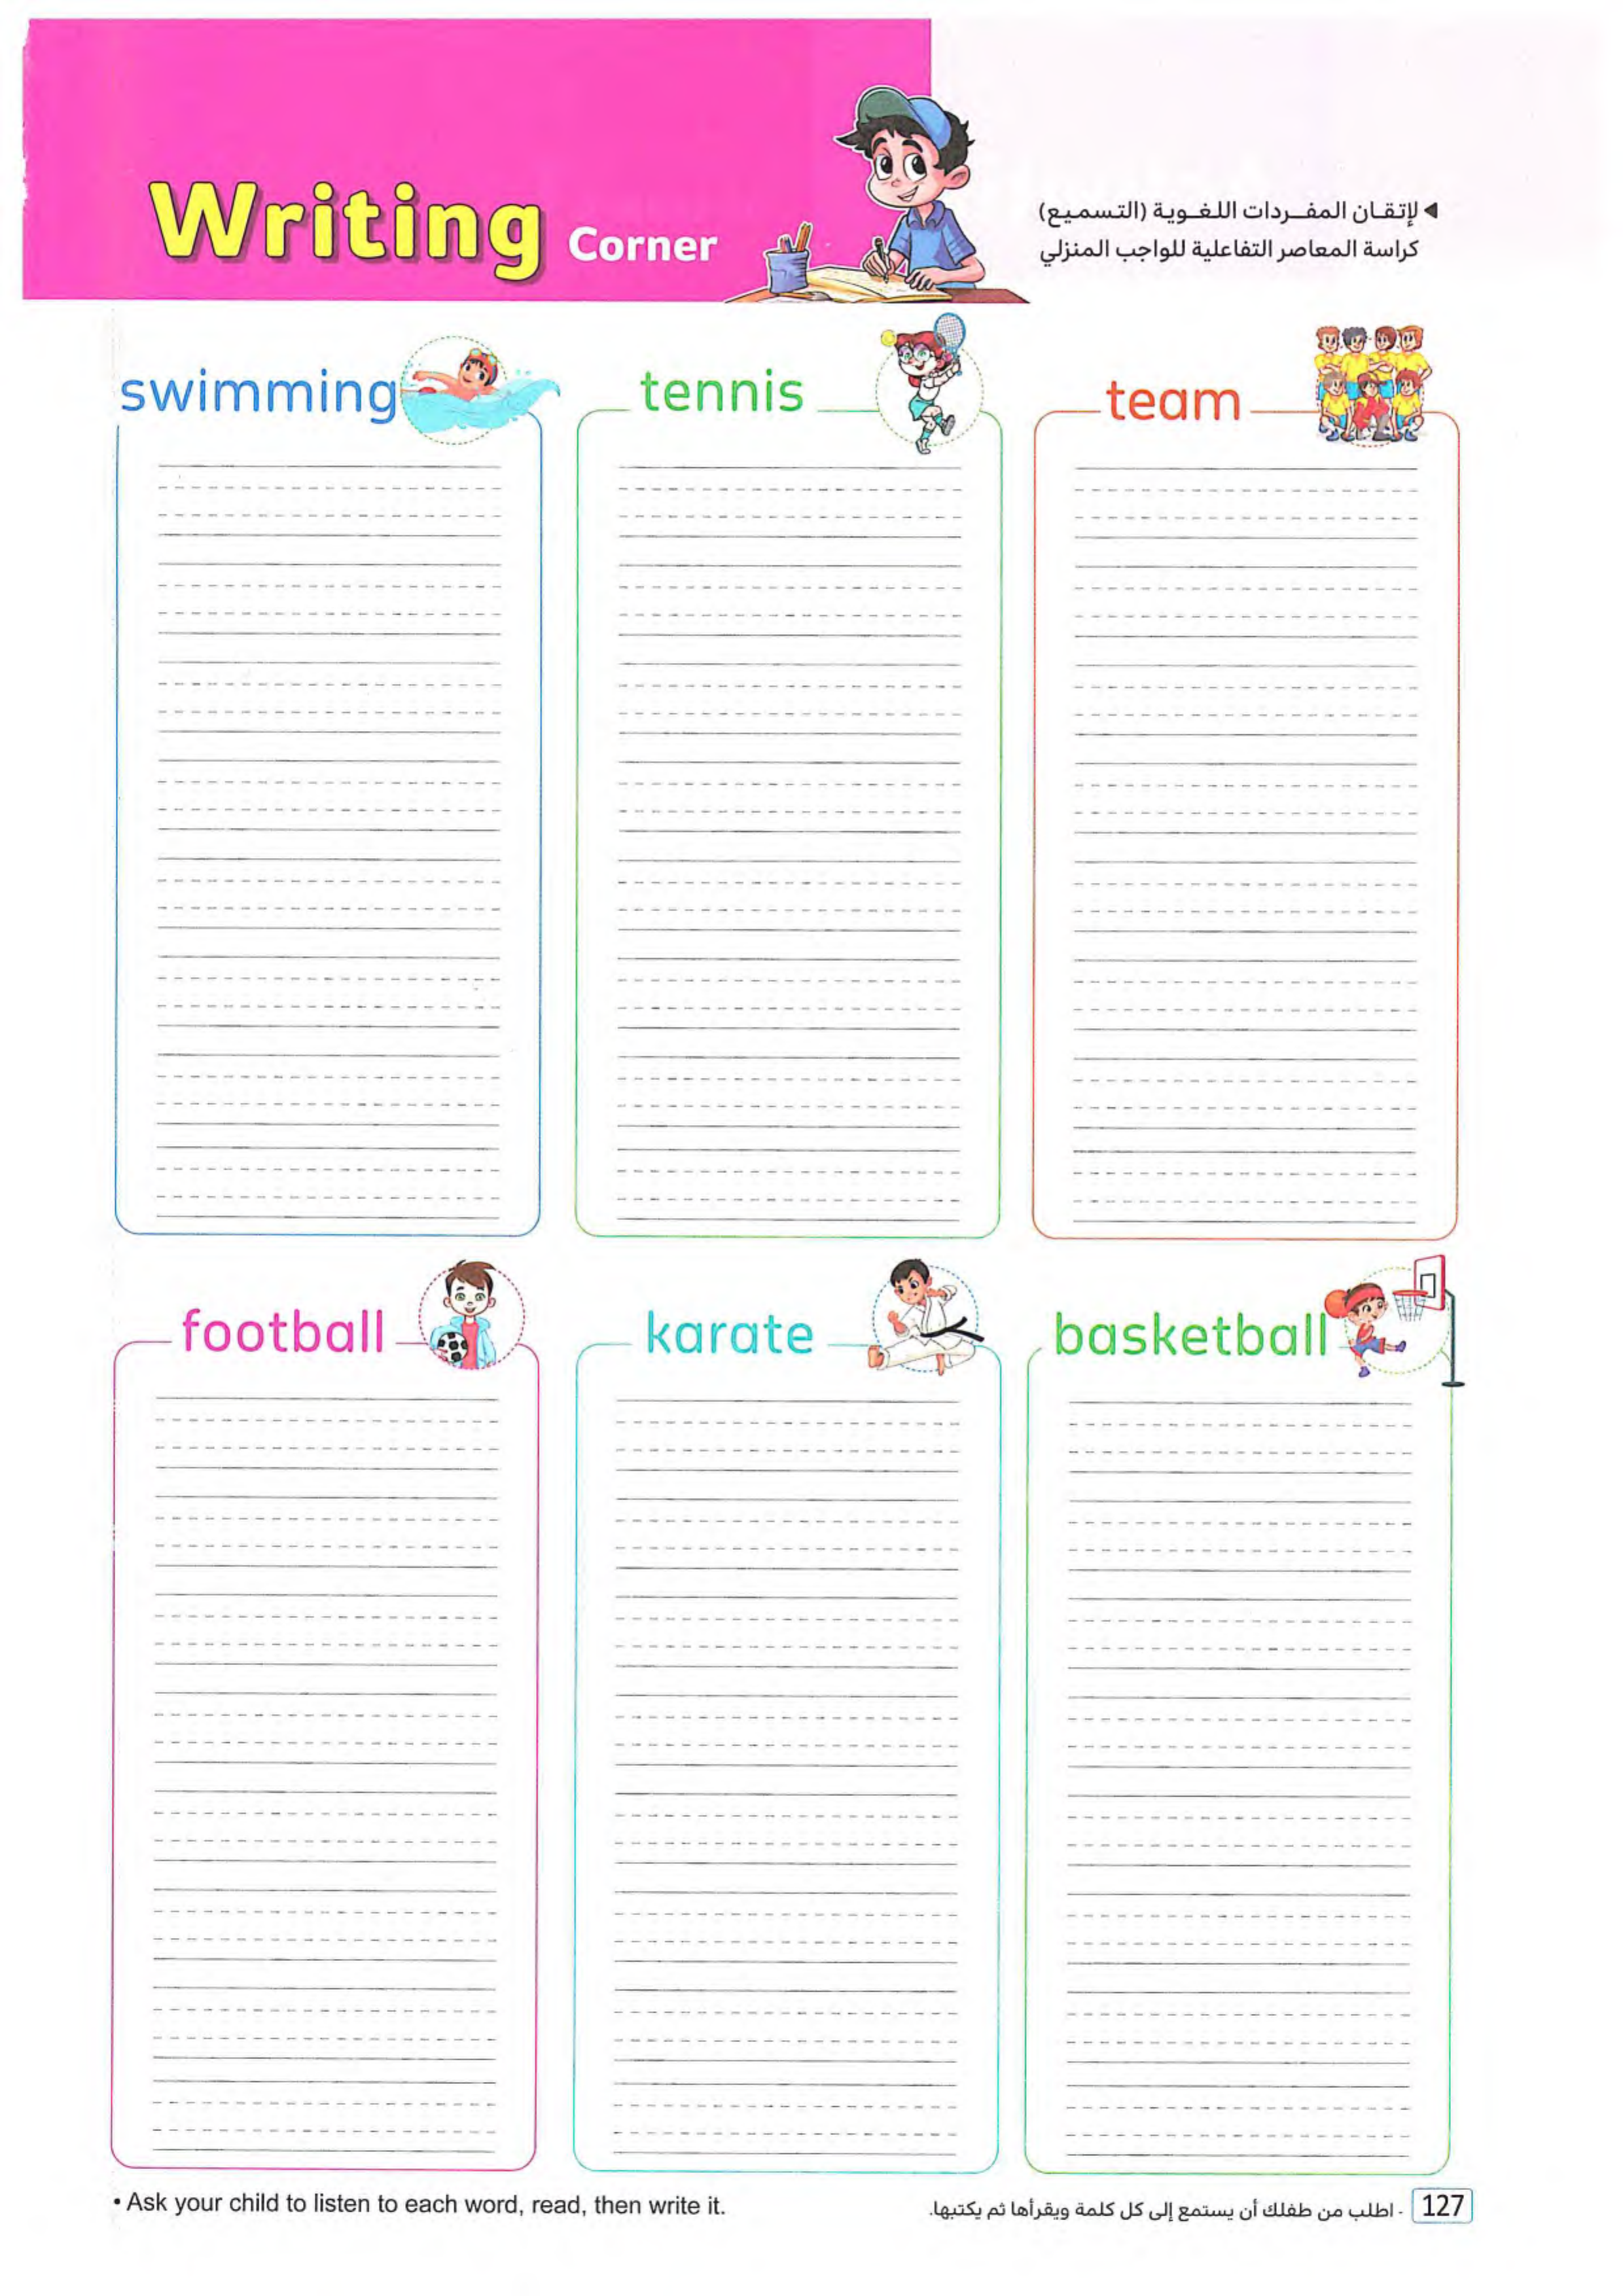 Writing Corner
◄ لإتقـان المفــردات اللغـوية (التسميع)
كراسة المعاصر التفاعلية للواجب المنزلي
swimming
tennis
team
football
karate
basketball
• Ask your child to listen to each word, read, then write it.
- اطلب من طفلك أن يستمع إلى كل كلمة ويقرأها ثم يكتبها.
127